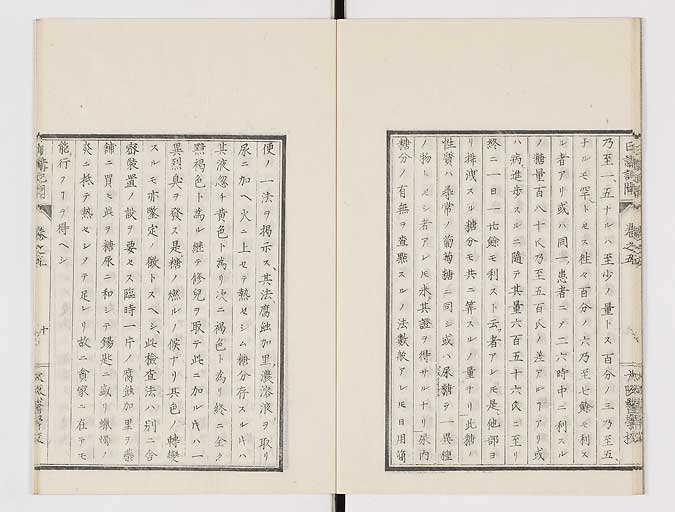 乃至一、五ナルハ至少ノ量トス百分ノ三乃至五、
ナルモ罕トセス往々百分ノ六乃至七餘モ利ス
ル者アリ或ハ同一患者ニメ二六時中ニ利スル
ノ糖量百八十氏乃至五百氏ノ差アルヿアリ或
ハ病進歩スルニ隨テ其量六百五十六氏ニ至リ
終ニ一日一比餘モ利スト云者アレ𪜈是他部ヨ
リ排洩スル糖分モ共ニ算スルノ量ナリ此糖ノ
性質ハ尋常ノ葡萄糖ニ同シ或ハ尿糖ヲ一異種
ノ物トセシ者アレ𪜈未其證ヲ得サルナリ尿内
糖分ノ有無ヲ査點スルノ法數般アレ𪜈日用簡
便ノ一法ヲ掲示ス、其法腐蝕加里濃溶液ヲ取リ
尿ニ加ヘ火ニ上セテ熱セシム糖分存スル𪜈ハ
其液忽チ黄色ト為リ次ニ褐色ト為リ終ニ全ク
黯褐色ト為ル継テ修兒ヲ取テ此ニ加ル𪜈ハ一
異烈臭ヲ發ス是糖ノ燃ルノ候ナリ其色ノ轉變
スルモ亦鑒定ノ徴トスヘシ、此檢査法ハ別ニ舎
密裝置ノ設ヲ要セス臨時一片ノ腐蝕加里ヲ藥
鋪ニ買モ此ヲ糖尿ニ和シテ鍚匙ニ盛リ蠟燭ノ
炎ニ柢テ熱セシメテ足レリ故ニ貧家ニ在テモ
能行フヿヲ得ヘシ
卷之五
十